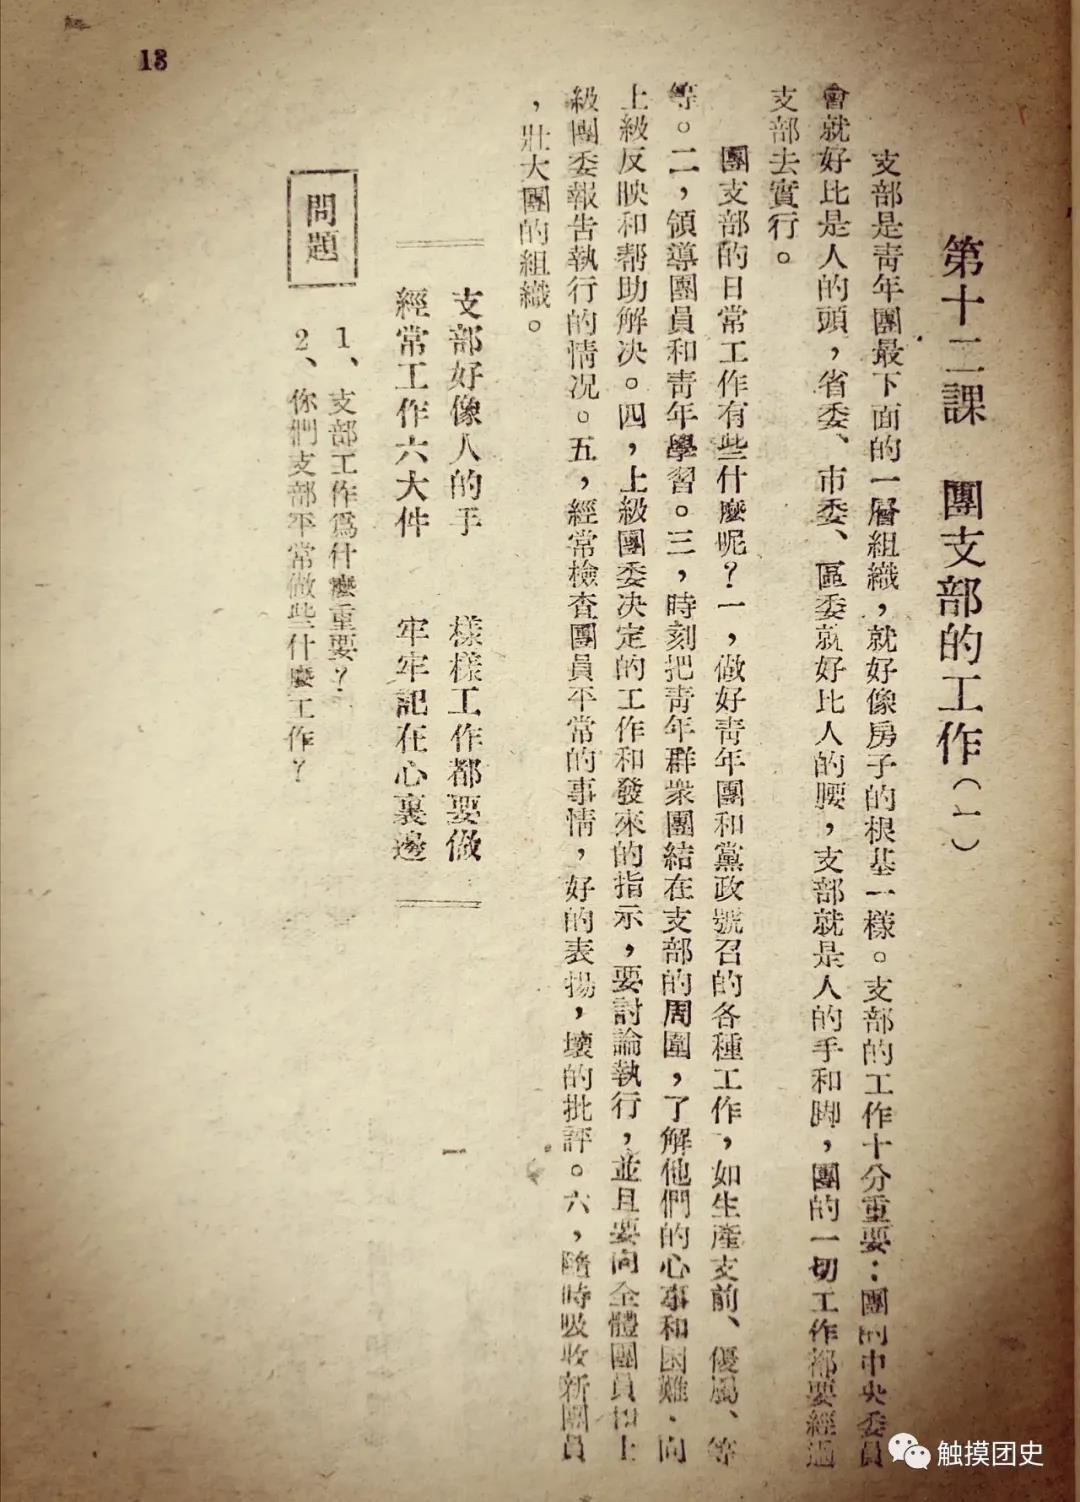 第十二課　團支部的工作（一）
支部是靑年團最下面的一層組織，就好像房子的根基一樣。支部的工作十分重要：團的中央委員
會就好比是人的頭，省委、市委、區委就好比人的腰，支部就是人的手和脚，團的一切工作都要經過
支部去實行。
團支部的日常工作有些什麼呢？一，做好靑年團和黨政號召的各種工作，如生產支前、優屬、等
等。二，領導團員和靑年學習。三，時刻把靑年群衆團結在支部的周圍，了解他們的心事和困難，向
上級反映和帮助解决。四，上級團委决定的工作和發來的指示，要討論執行，並且要向全體團員和上
級團委報告執行的情况。五，經常檢查團員平常的事情，好的表揚，壞的批評。六，隨時吸收新團員
，壯大團的組織。
支部好像人的手　樣樣工作都要做
經常工作六大件　牢牢記在心裏邊
問題
1、支部工作爲什麼重要？
2、你們支部平常做些什麼工作？
13
触摸团史